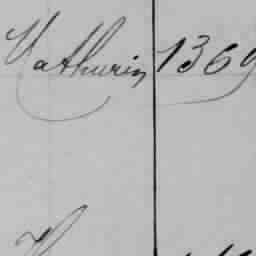 Mathurin 1369